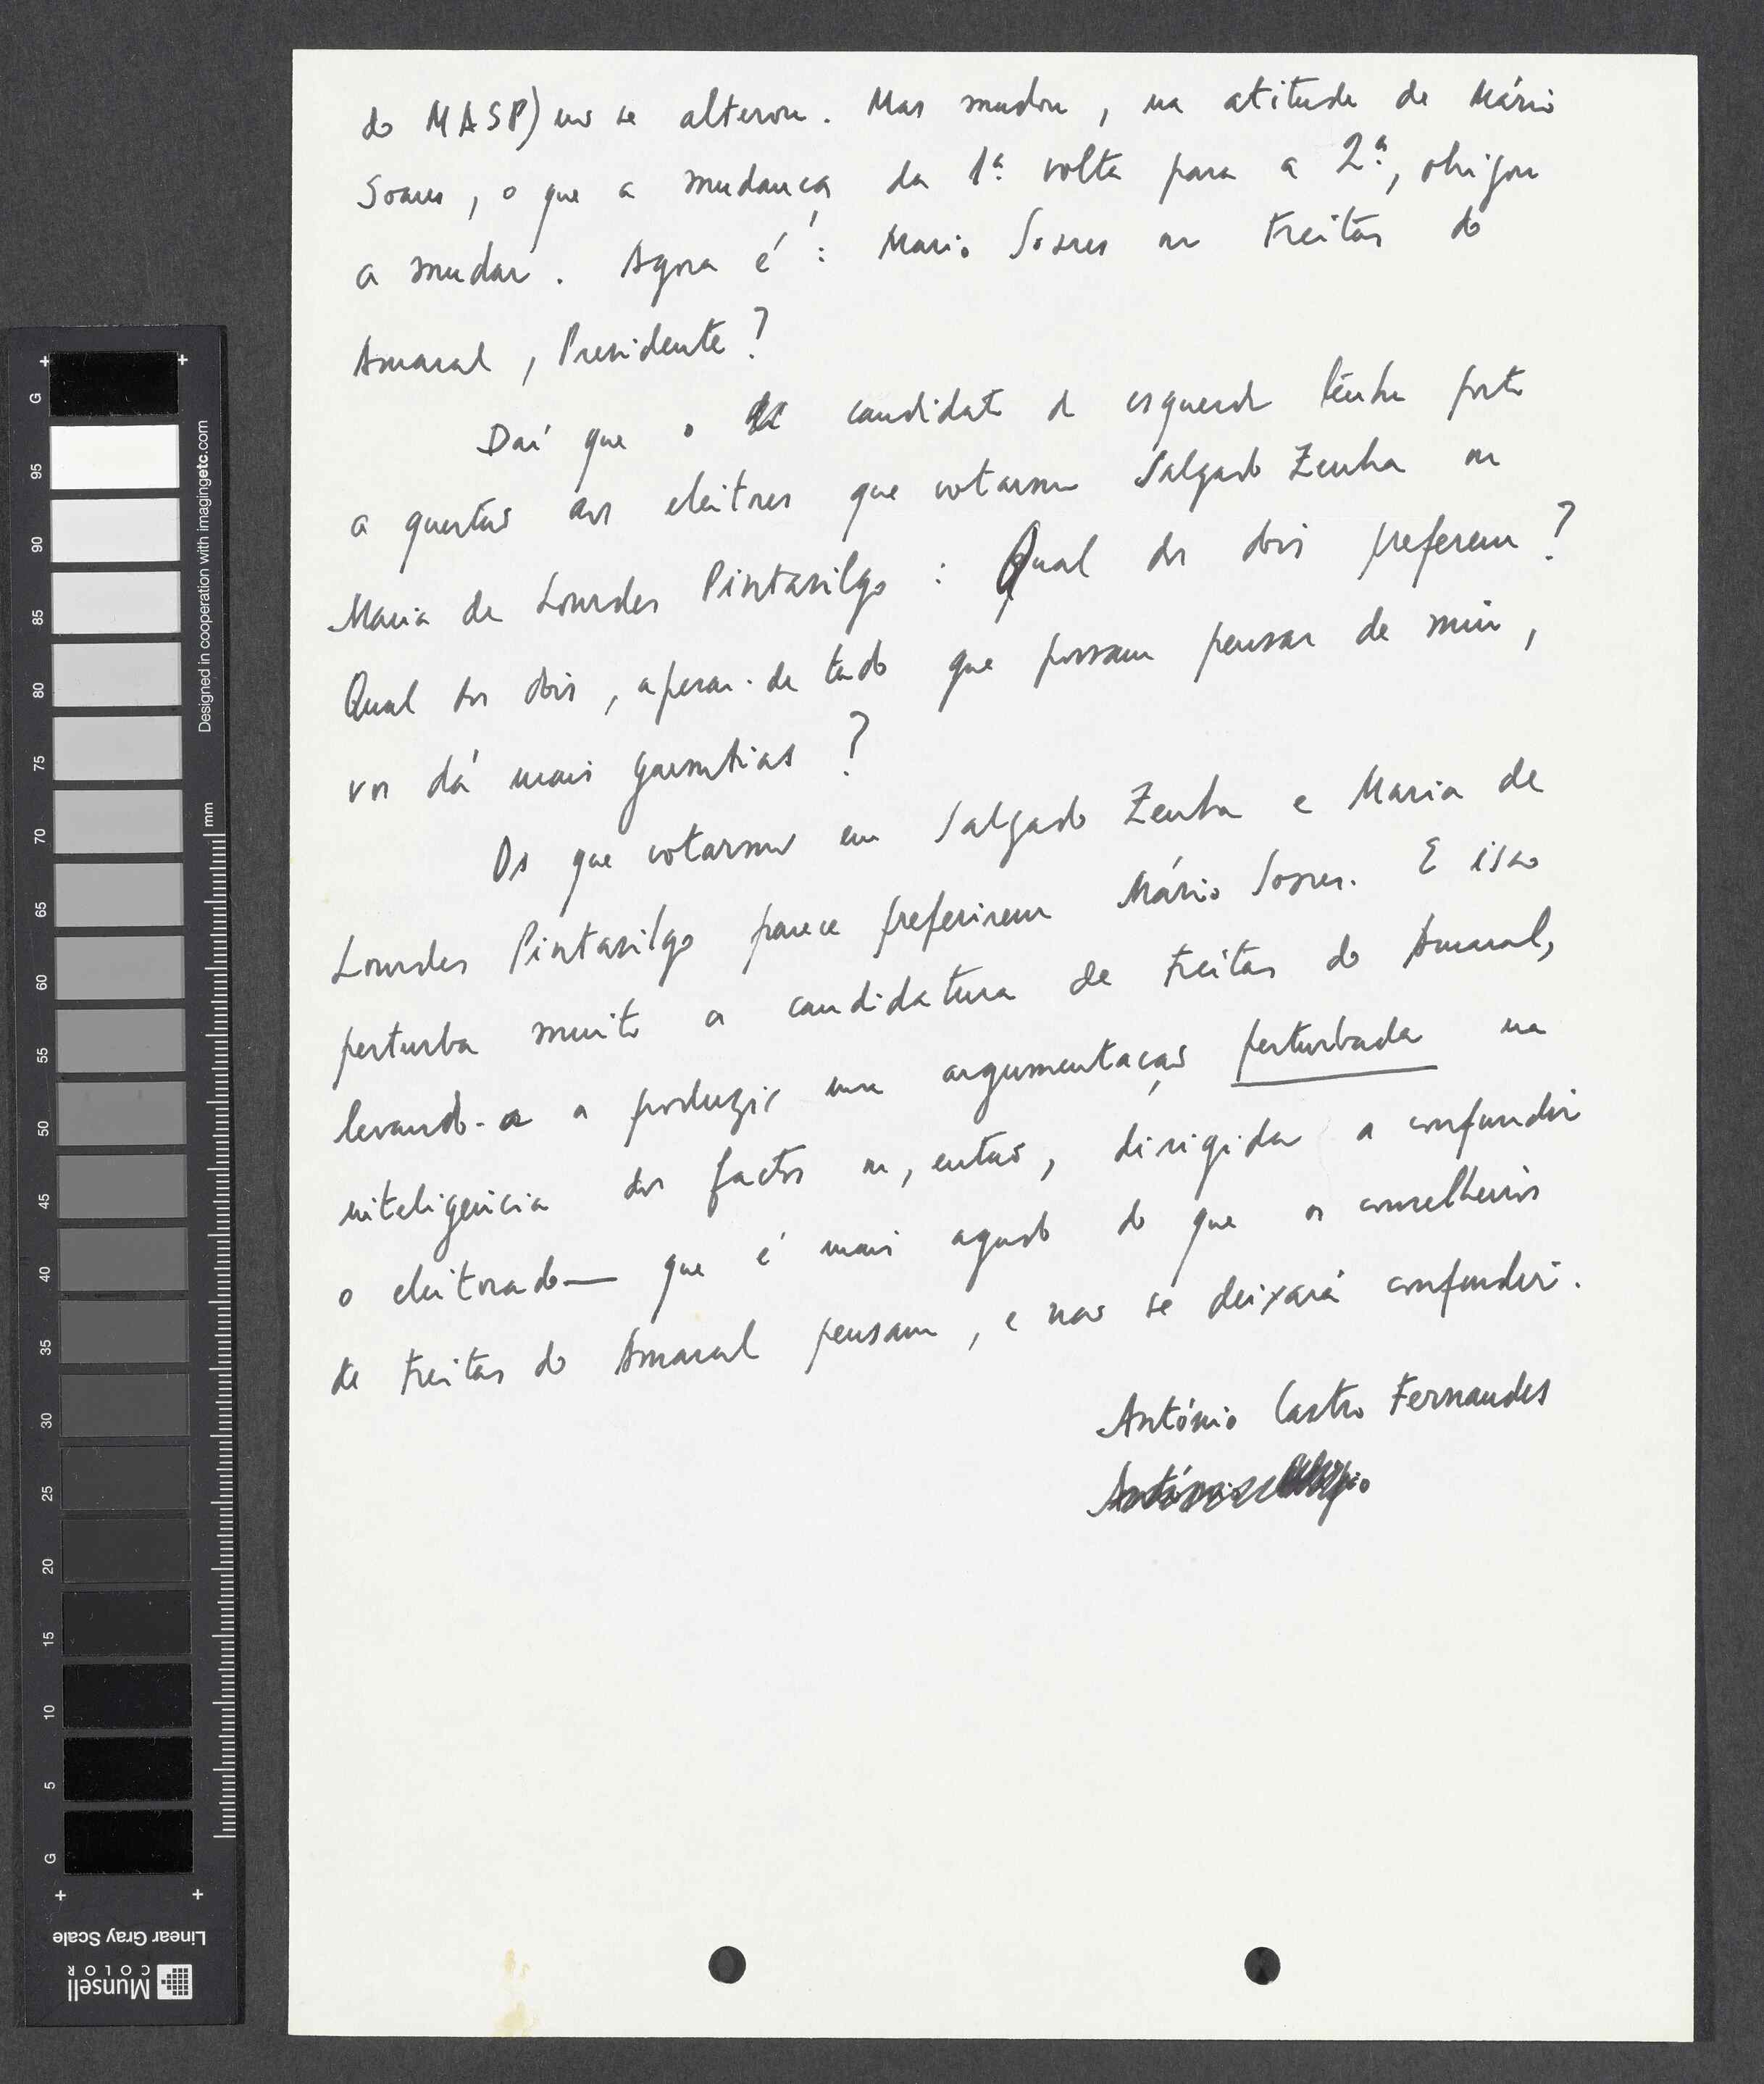 do MASP) não se alterou. Mas mudou, na atitude de Mário
Soares, o que a mudança da 1ª volta para a 2ª, obrigou
a mudar. Agora é: Mario Soares ou Freitas do
Amaral, Presidente?
Daí que o candidato da esquerda tenha posto
a questão aos eleitores que votaram Salgado Zenha ou
Maria de Lourdes Pintasilgo: Qual dos dois preferem?
Qual dos dois, apesar de tudo que possam pensar de mim,
vos dá mais garantias?
Os que votaram em Salgado Zenha e Maria de
Lourdes Pintasilgo parece preferirem Mário Soares. E isso
perturba muito a candidatura de Freitas do Amaral,
levando-a a produzir uma argumentação perturbada na
inteligência dos factos ou, então, dirigida a confundir
o eleitorado — que é mais agudo do que os conselheiros
de Freitas do Amaral pensam, e não se deixará confundir.
António Castro Fernandes
G
95
90
85
80
75
70
65
60
55
50
45
40
35
30
25
20
15
10
5
G
Designed in cooperation with imagingetc.com
mm
Linear Gray Scale
Munsell
COLOR